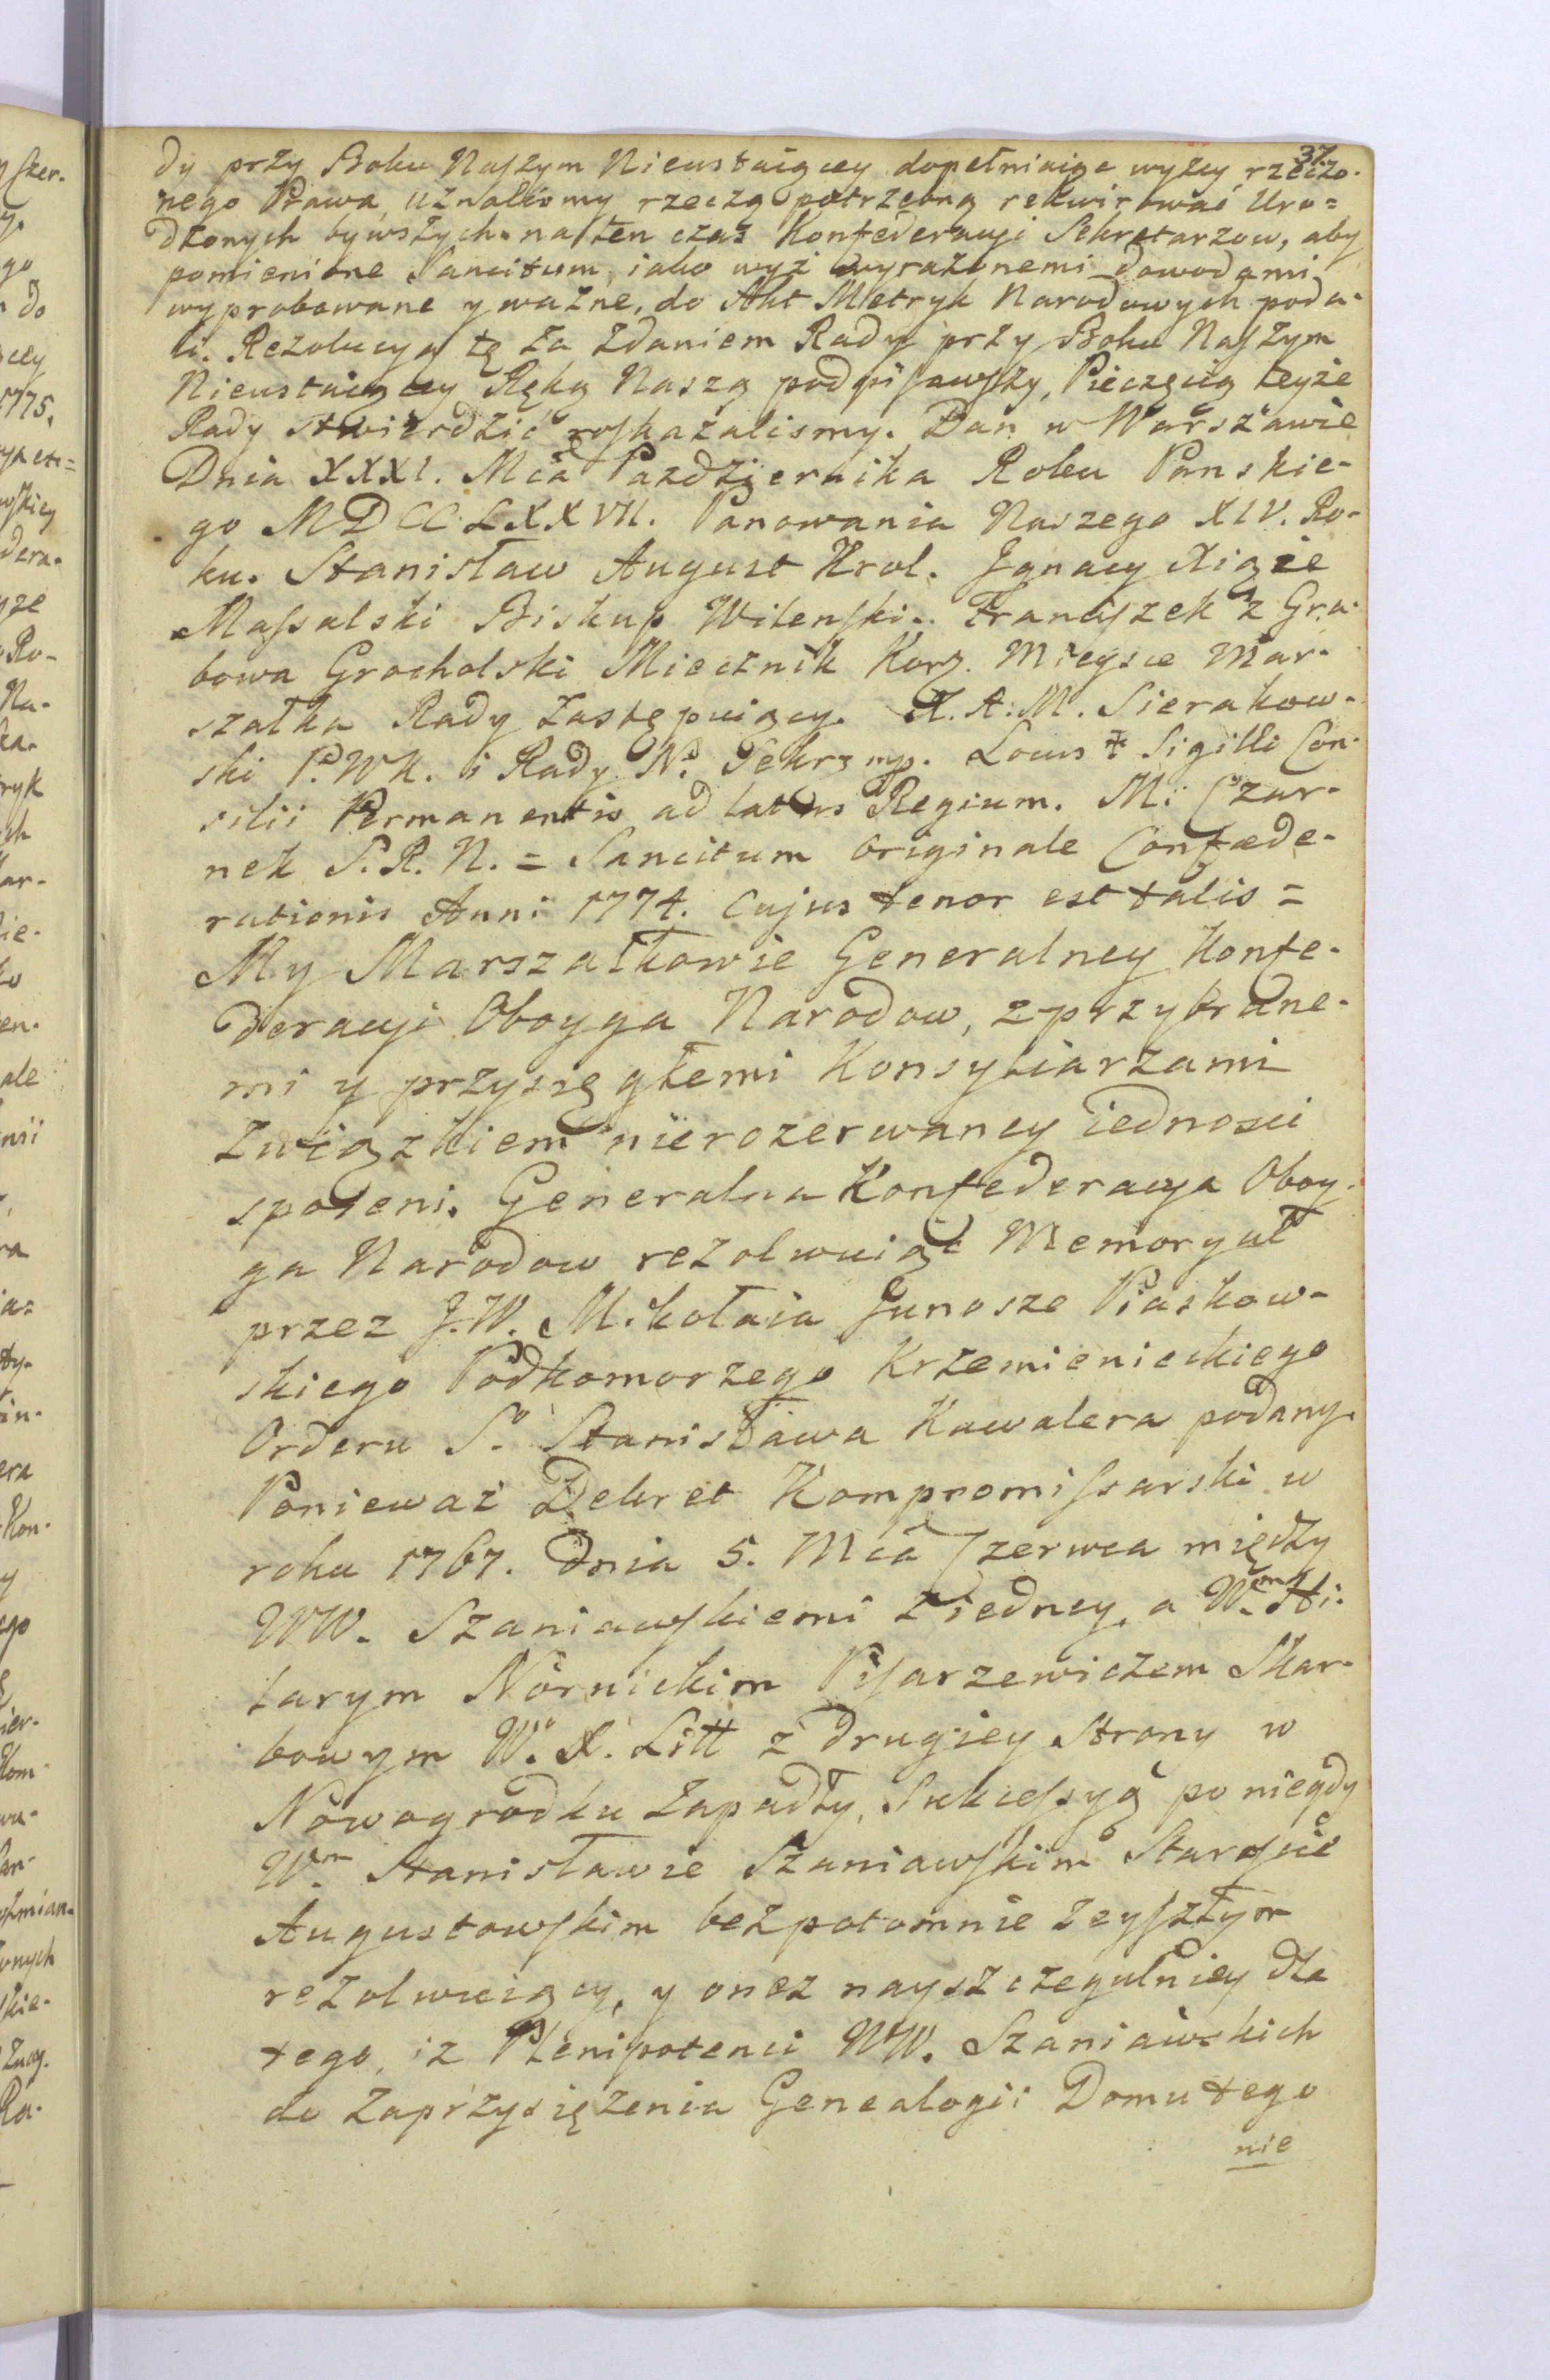 37
dy przy Boku Naszym Nieustaiącey dopełniaiąc wyżey rzeczo-
nego Prawa, uznalismy rzeczą potrzebną rekwirować Uro=
dzonych bywszych na ten czas Konfederacyi Sekretarzow, aby
pomienione Sancitum, iako wyż wyrażonemi dowodami
wyprobowane y ważne, do Akt Metryk Narodowych poda-
li. Rezolucyą tę za zdaniem Rady przy Boku Naszym
Nieustaiącey Ręką Naszą podpisawszy, Pieczęcią teyże
Rady stwierdzić roskazalismy. Dan w Warszawie
Dnia XXXI. Mca Pazdziernika Roku Panskie-
go MDCCLXXVII. Panowania Naszego XIV. Ro-
ku. Stanisław August Krol. Jgnacy Xiąże
Massalski Biskup Wilenski. Franciszek z Gra-
bowa Grocholski Miecznik Korz. Mieysce Mar-
szałka Rady zastępuiący. X. A. M. Sierakow-
ski P. W K. i Rady N. Sekrz mp. Locus † Sigilli Con-
silii Permanentis ad latus Regium. M: Czar-
nek S. R. N. = Sancitum Originale Confæde-
rationis Anni 1774. Cujus tenor est talis =
My Marszałkowie Generalney Konfe-
deracyi Oboyga Narodow, z przybrane-
mi y przysięgłemi Konsyliarzami
Związkiem nierozerwaney iednosci
spoieni. Generalna Konfederacya Oboy-
ga Narodow rezolwuiąc Memoryał
przez J. W. Mikołaia Junosze Piaskow-
skiego Podkomorzego Krzemienieckiego
Orderu S. Stanisława Kawalera podany.
Ponieważ Dekret Kompromissarski w
roku 1767. Dnia 5. Mca Czerwca między
WW. Szaniawskiemi z iedney, a W.mk Hi-
larym Nornickim Pisarzewiczem Skar-
bowym W. X. Litt z drugiey Strony w
Nowogrodku zapadły, Sukcessyą po niegdy
W.m Stanisławie Szaniawskim Staroscie
Augustowskim bezpotomnie zeyszłym
rezolwuiący, y onez nayszczegulniey dla
tego, iz Plenipotenci WW. Szaniawskich
do zaprzysiężenia Genealogii Domu tego
nie